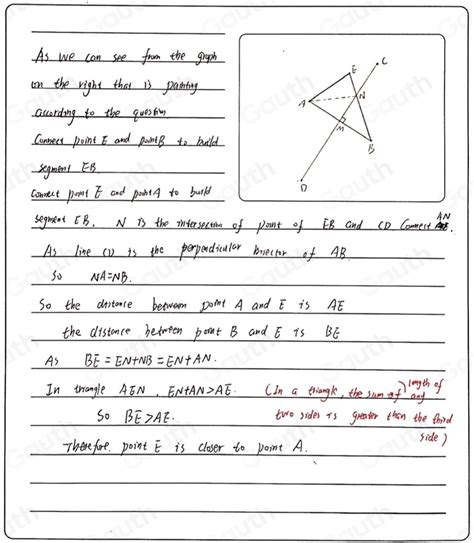 As we can see from the graph
on the right that is painting
according to the question
Connect point E and point B to build
segment EB.
Connect point E and point A to build
segment EB. N is the intersection of point of EB and CD. Connect AN
As line CD is the perpendicular bisector of AB.
So NA=NB.
So the distance between point A and E is AE
the distance between point B and E is BE
As BE = EN+NB = EN+AN.
In triangle AEN, EN+AN>AE. (In a triangle, the sum of length of any
So BE>AE. two sides is greater than the third
side)
Therefore, point E is closer to point A.
E
C
A
N
M
B
D
Gauth